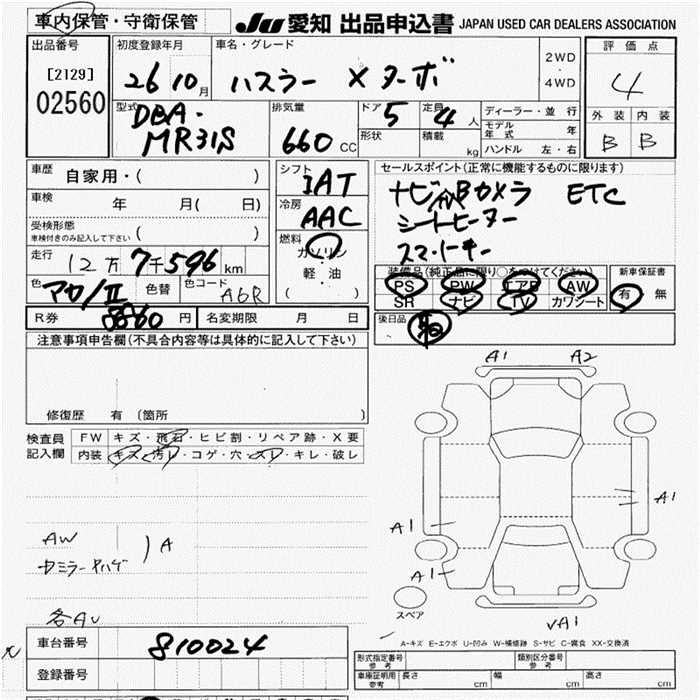 車内保管・守衛保管
JU 愛知 出品申込書 JAPAN USED CAR DEALERS ASSOCIATION
出品番号 初度登録年月 車名・グレード 2WD・4WD 評価点
[2129] 02560 26 10月 ハスラー Xターボ 4
型式 排気量 ドア 5 定員 4人 ディーラー・並行 外装 内装
DBA-MR31S 660CC 形状 積載 kg モデル年式 年 B B
ハンドル 左・右
車歴 自家用・( ) シフト IAT セールスポイント(正常に機能するものに限ります)
車検 年 月( 日) 冷房 AAC ナビ Bカメラ ETC
シートヒーター
受検形態 車検付きのみ記入して下さい ( ) 燃料 ガソリン・軽・油 ( )
スマートキー
走行 12万7千596km 装備品(純正品に限り○をつけてください) 新車保証書
色 色替 色コード A6R PS PW エアB AW 有 無
SR ナビ TV カワシート
R券 8860円 名変期限 月 日 後日品
注意事項申告欄(不具合内容等は具体的に記入して下さい)
修復歴 有 (箇所
検査員記入欄 FW キズ・飛石・ヒビ割・リペア跡・X要
内装 キズ・汚レ・コゲ・穴・スレ・キレ・破レ
A1 A2
A1
A1
AW
A
A1
スペア
VA1
A-キズ E-エクボ U-凹み W-補修跡 S-サビ C-腐食 XX-交換済
車台番号 810024
形式指定番号 参考 類別区分番号 参考
登録番号
車庫証明用 参考 長さ cm 幅 cm 高さ cm